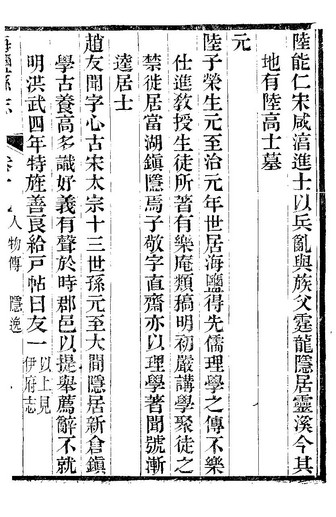 陸能仁宋咸淳進士以兵亂與族父霆龍隱居靈溪今其
地有陸高士墓
元
陸子榮生元至治元年世居海鹽得先儒理學之傳不樂
仕進教授生徒所著有樂庵類稿明初嚴講學聚徒之
禁徙居當湖鎮隱焉子敬字直齋亦以理學著聞號漸
逵居士
趙友聞字心古宋太宗十三世孫元至大間隱居新倉鎮
學古養高多識好義有聲於時郡邑以提舉薦辭不就
明洪武四年特旌善良給戶帖曰友一以上見
伊府志
人物傳 隱逸